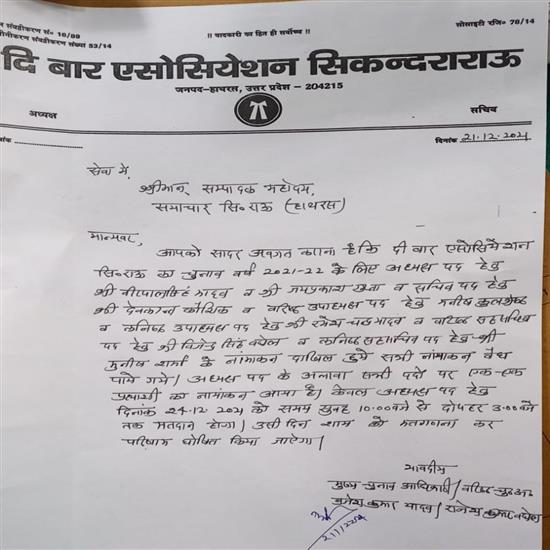 संवद्धीकरण सं० 16/89
संवद्धीकरण संख्या 53/14
।। वादकारी का हित ही सर्वोच्च ।।
सोसाइटी रजि० 78/14
दि बार एसोसियेशन सिकन्दराराऊ
जनपद-हाथरस, उत्तर प्रदेश - 204215
अध्यक्ष
सचिव
दिनांक 21.12.2021
सेवा में,
श्रीमान् सम्पादक महोदय,
समाचार सि०राऊ (हाथरस)
मान्यवर,
आपको सादर अवगत कराना है कि दी बार एसोसियेशन
सि०राऊ का चुनाव वर्ष 2021-22 के लिए अध्यक्ष पद हेतु
श्री वीरपालसिंह यादव व श्री जयप्रकाश व सचिव पद हेतु
श्री देवकान्त कौशिक व वरिष्ठ उपाध्यक्ष पद हेतु मनीष कुलश्रेष्ठ
व कनिष्ठ उपाध्यक्ष पद हेतु श्री रमेश चन्द्र यादव व वरिष्ठ सहसचिव
पद हेतु श्री विजेन्द्र सिंह बघेल व कनिष्ठ सहसचिव पद हेतु श्री
मनीष शर्मा के नामांकन दाखिल हुये सभी नामांकन वैध
पाये गये। अध्यक्ष पद के अलावा सभी पदो पर एक-एक
प्रत्याशी का नामांकन आया है। केवल अध्यक्ष पद हेतु
दिनांक 24.12.2021 को समय सुबह 10:00 बजे से दोपहर 3:00 बजे
तक मतदान होगा। उसी दिन शाम को मतगणना कर
परिणाम घोषित किया जाऐगा।
भवदीय
मुख्य चुनाव अधिकारी/ वरिष्ठ
यादव / राजेश कुमार बघेल